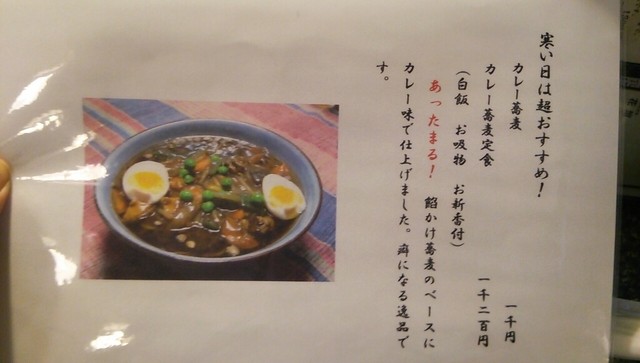 寒い日は超おすすめ!
カレー蕎麦 一千円
カレー蕎麦定食 一千二百円
(白飯 お吸物 お新香付)
あったまる! 餡かけ蕎麦のベースに
カレー味で仕上げました。癖になる逸品で
す。